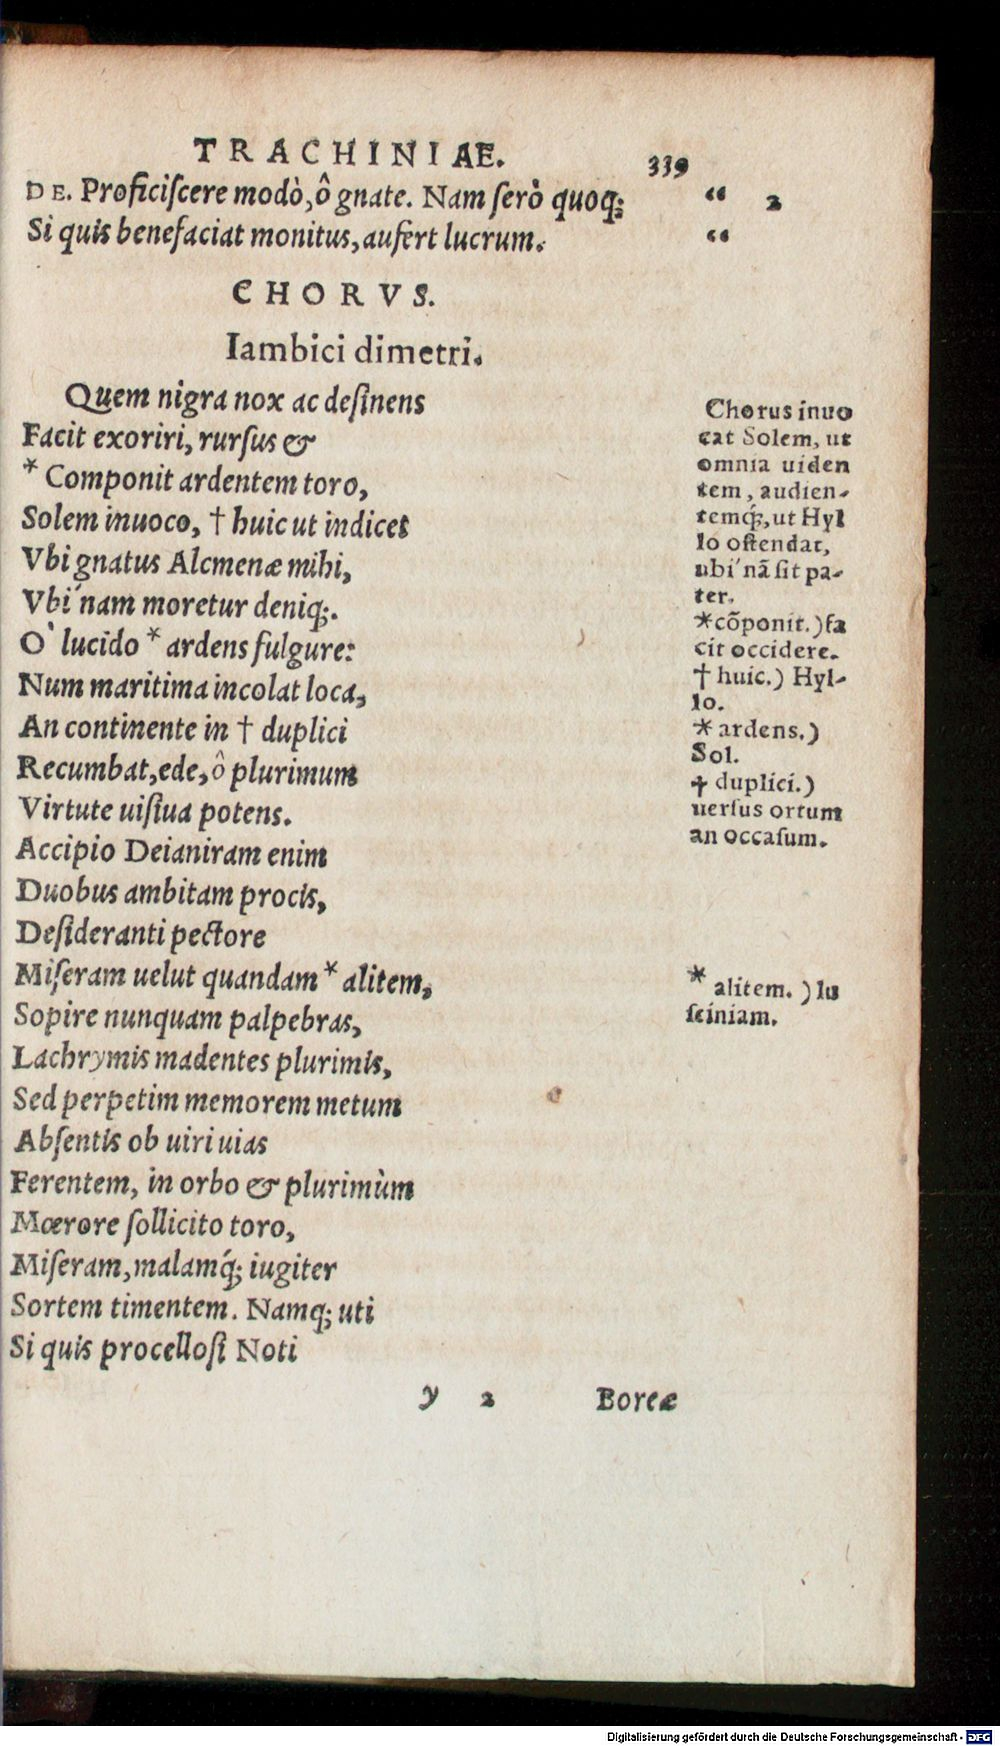 TRACHINIAE. 339
DE. Proficiſcere modò, ô gnate. Nam ſerò quoq; “ 2
Si quis benefaciat monitus, aufert lucrum. “
CHORVS.
Iambici dimetri.
Quem nigra nox ac deſinens
Facit exoriri, rurſus &
* Componit ardentem toro,
Solem inuoco, † huic ut indicet
Vbi gnatus Alcmenæ mihi,
Vbi´nam moretur deniq;.
O` lucido * ardens fulgure:
Num maritima incolat loca,
An continente in † duplici
Recumbat, ede, ô plurimum
Virtute uiſiua potens.
Accipio Deianiram enim
Duobus ambitam procis,
Deſideranti pectore
Miſeram uelut quandam * alitem,
Sopire nunquam palpebras,
Lachrymis madentes plurimis,
Sed perpetim memorem metum
Abſentis ob uiri uias
Ferentem, in orbo & plurimùm
Mœrore ſollicito toro,
Miſeram, malamq́; iugiter
Sortem timentem. Namq; uti
Si quis procelloſi Noti
y 2 Boreæ
Chorus inuo
cat Solem, ut
omnia uiden
tem, audien-
temq́;, ut Hyl
lo oſtendat,
ubi´nã ſit pa-
ter.
*cõponit.) fa
cit occidere.
† huic.) Hyl-
lo.
* ardens.)
Sol.
† duplici.)
uerſus ortum
an occaſum.
* alitem.) lu
ſciniam.
Digitalisierung gefördert durch die Deutsche Forschungsgemeinschaft - DFG